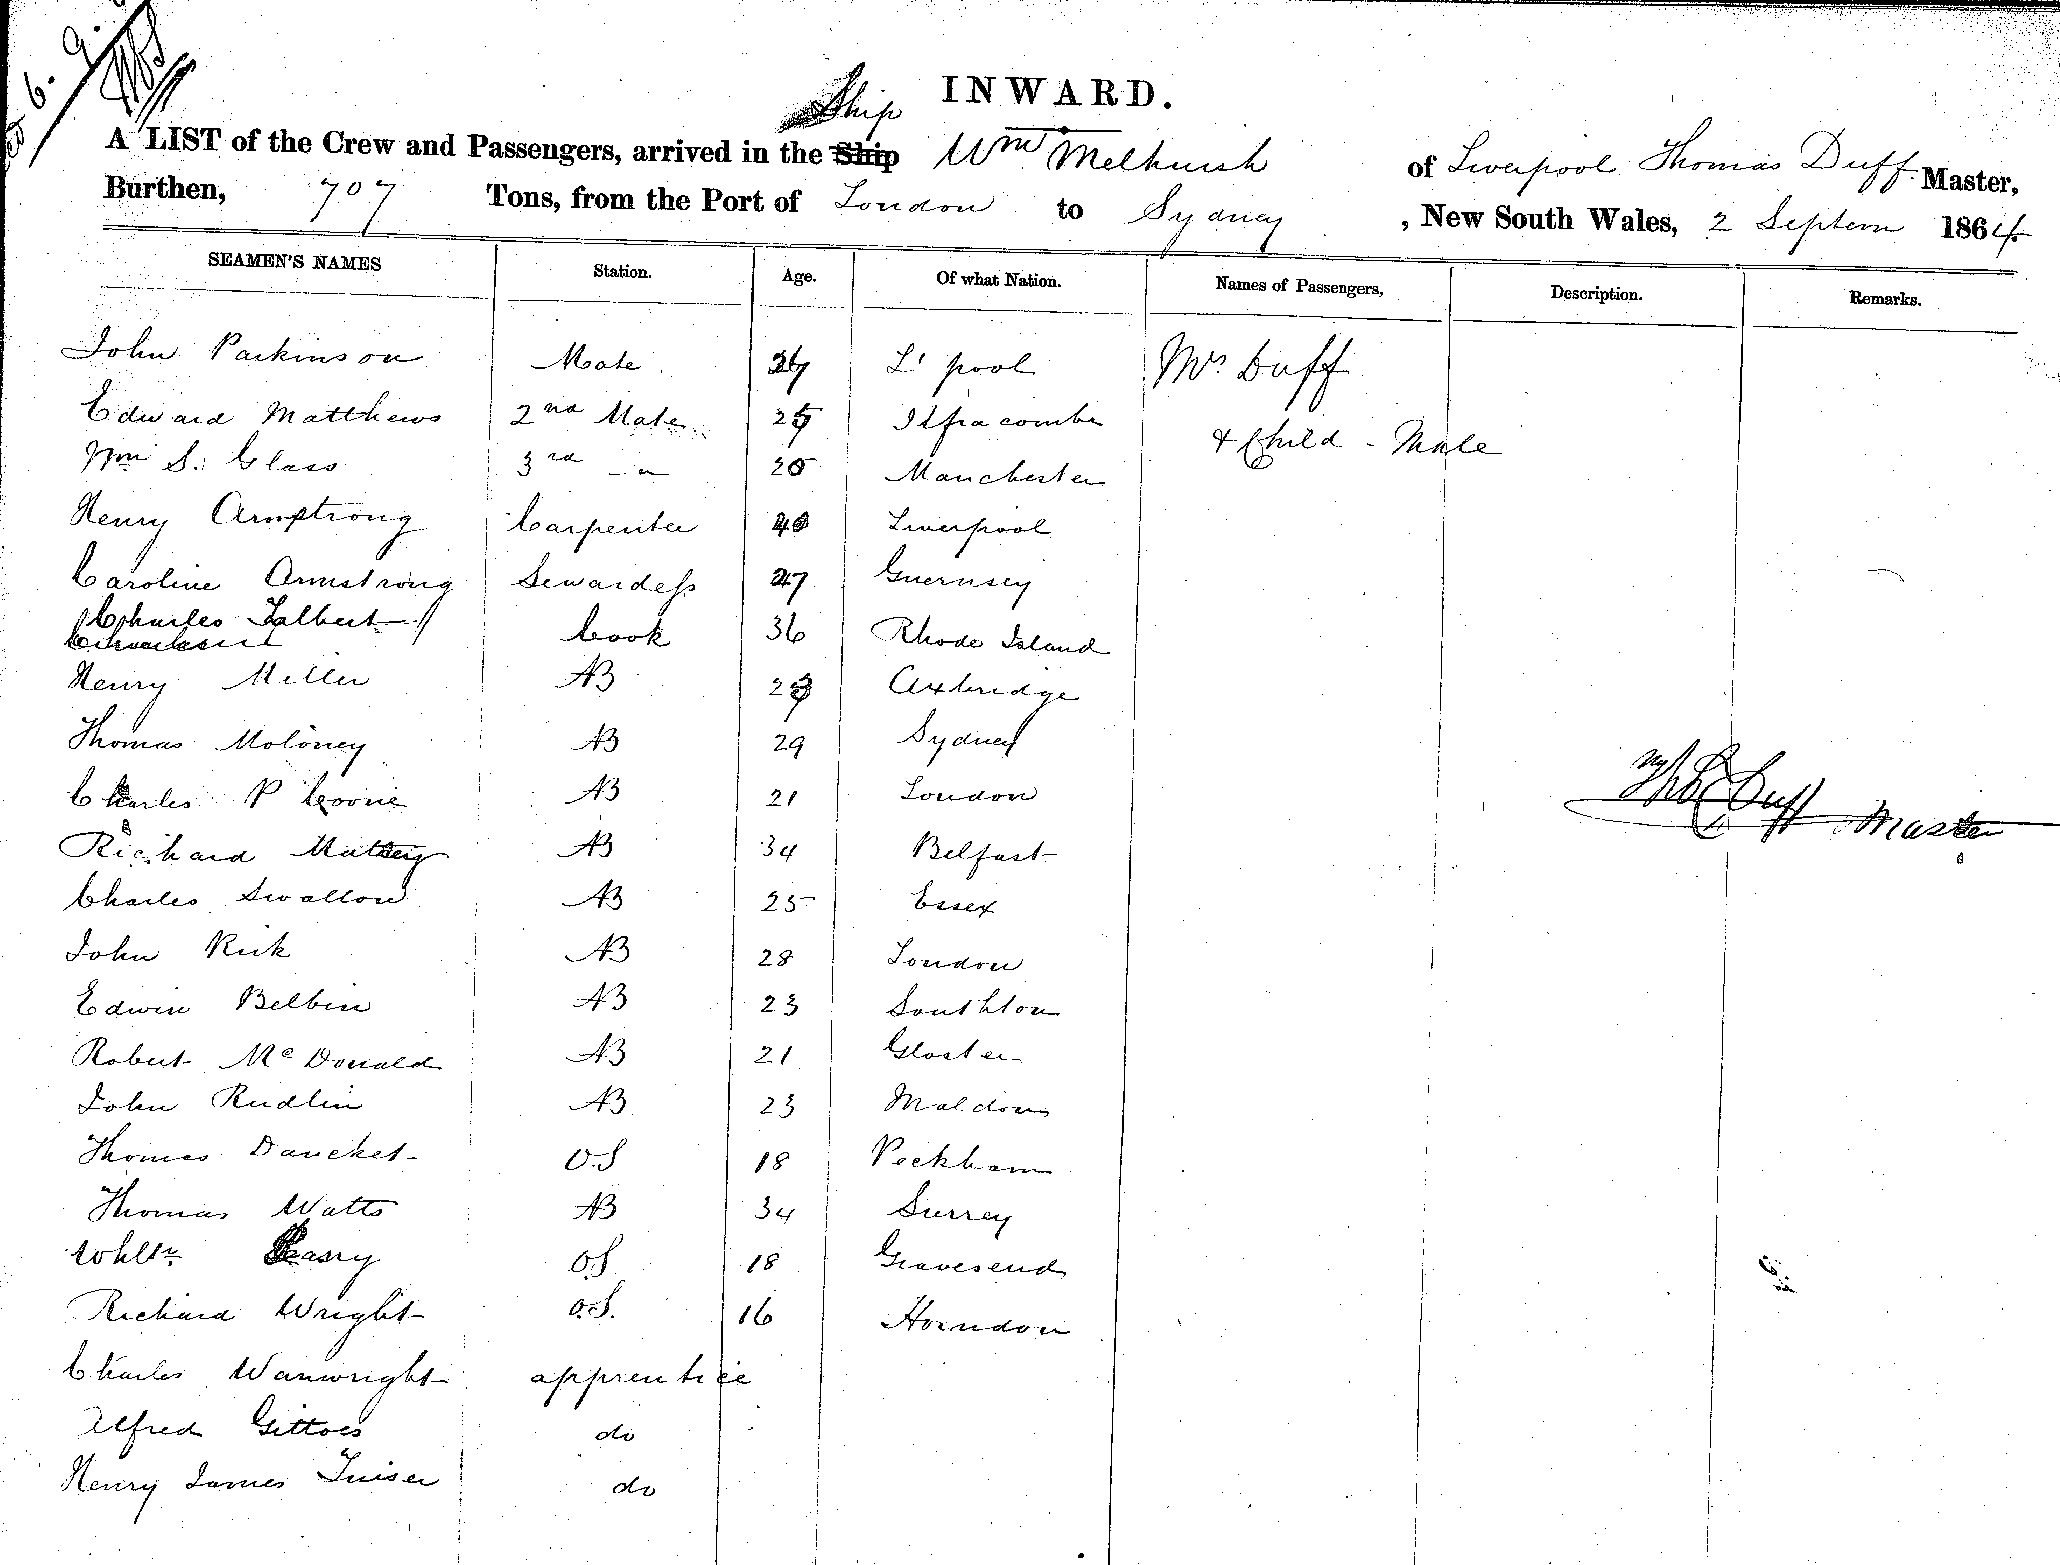 INWARD.
Ship
A LIST of the Crew and Passengers, arrived in the Ship Wm Melhuish of Liverpool Thomas Duff Master,
Burthen, 707 Tons, from the Port of London to Sydney , New South Wales, 2 Septem 1864
SEAMEN'S NAMES Station. Age. Of what Nation. Names of Passengers, Description. Remarks.
John Parkinson Mate L'pool Mrs Duff
Edward Matthews 2nd Mate 25 Ilfracombe & Child - Male
Wm S. Glass 3rd " 20 Manchester
Henry Armstrong Carpenter 40 Liverpool
Caroline Armstrong Sewardess 27 Guernsey
Charles Talbert Cook 36 Rhode Island
Henry Miller AB Axbridge
Thomas Moloney AB 29 Sydney
Charles P AB 21 London
Richard AB 34 Belfast
Charles Swallow AB 25 Essex
John AB 28 London
Edwin Belbin AB 23 Southton
Robert McDonald AB 21 Gloster
John Rudlin AB 23 Maldon
Thomas Dancket O.S 18 Peckham
Thomas Watts AB 34 Surrey
O.S 18 Gravesend
Richard Wright O.S. 16 Horndon
Charles Wanwright apprentice
Alfred Gittoes do
Henry James do
Thos Duff Master